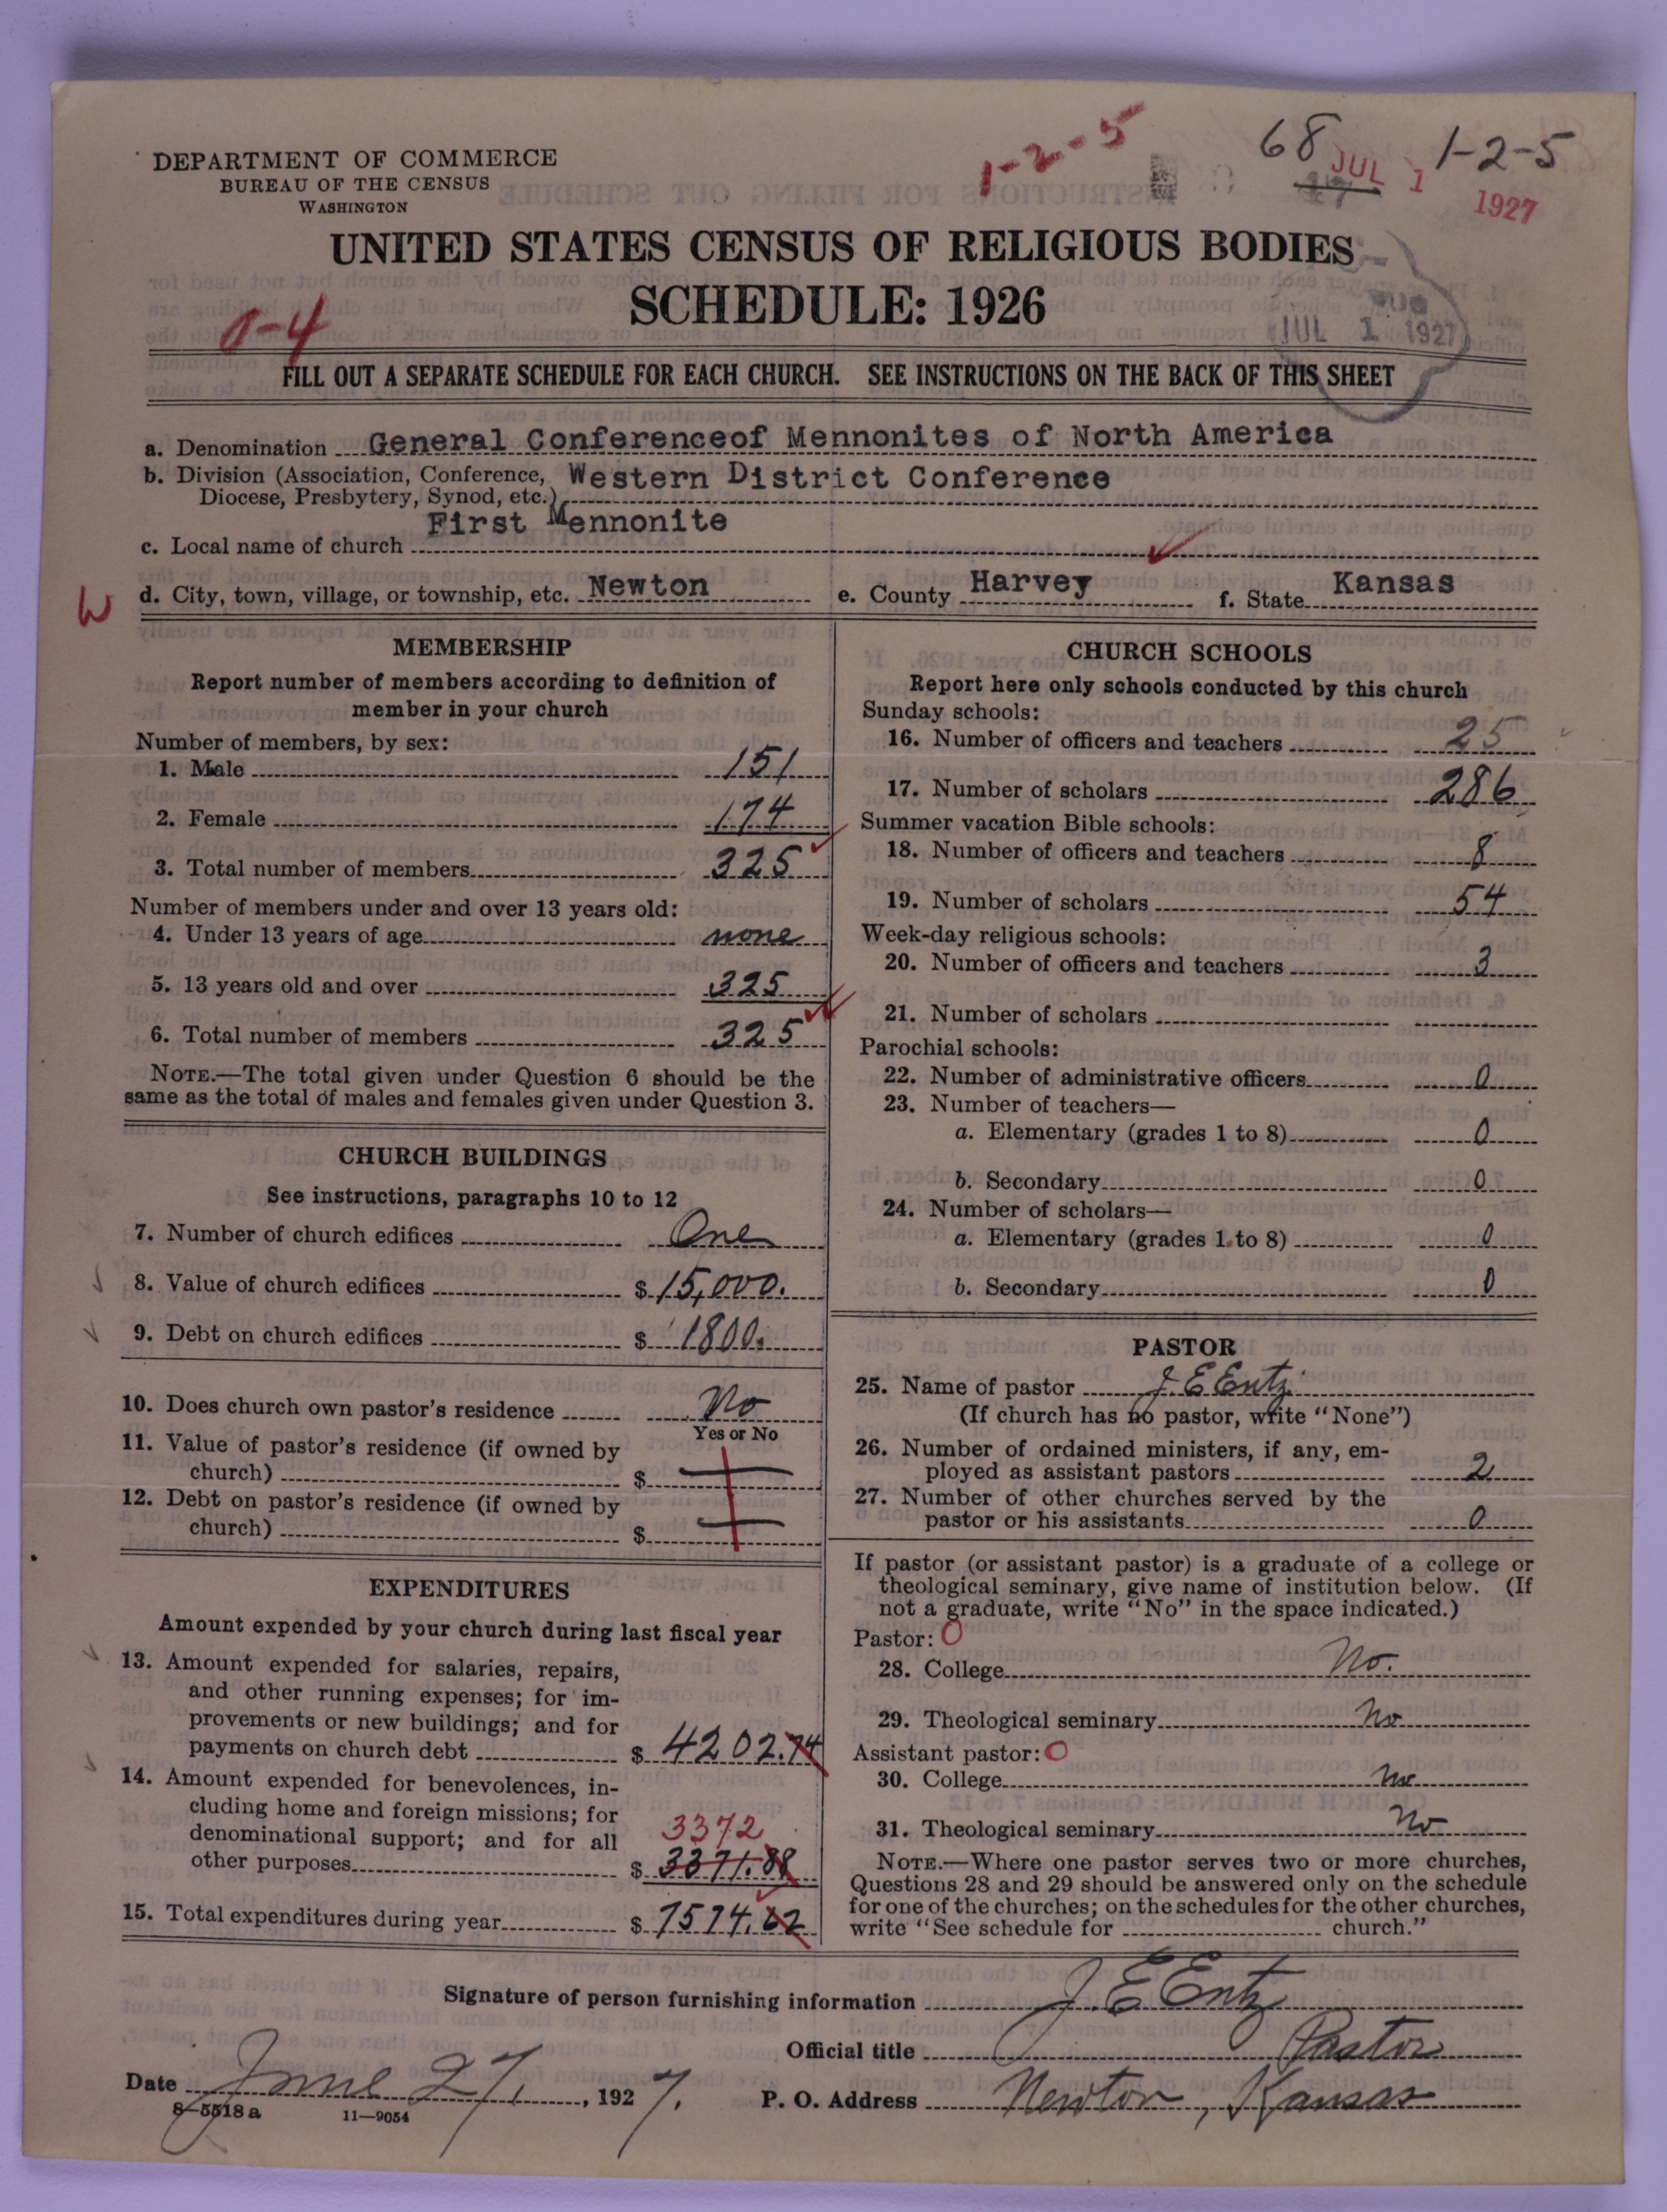 1-2-5
68
JUL 1 1927
1-2-5
DEPARTMENT OF COMMERCE
BUREAU OF THE CENSUS
WASHINGTON
UNITED STATES CENSUS OF RELIGIOUS BODIES
SCHEDULE: 1926
0-4
JUL 1 1927
FILL OUT A SEPARATE SCHEDULE FOR EACH CHURCH. SEE INSTRUCTIONS ON THE BACK OF THIS SHEET
a. Denomination General Conferenceof Mennonites of North America
b. Division (Association, Conference, Diocese, Presbytery, Synod, etc.) Western District Conference
c. Local name of church First Mennonite
W d. City, town, village, or township, etc. Newton e. County Harvey f. State Kansas
MEMBERSHIP
Report number of members according to definition of
member in your church
Number of members, by sex:
1. Male 151
2. Female 174
3. Total number of members 325
Number of members under and over 13 years old:
4. Under 13 years of age none
5. 13 years old and over 325
6. Total number of members 325
NOTE.—The total given under Question 6 should be the
same as the total of males and females given under Question 3.
CHURCH BUILDINGS
See instructions, paragraphs 10 to 12
7. Number of church edifices One
8. Value of church edifices $ 15,000.
9. Debt on church edifices $ 1800.
10. Does church own pastor's residence No
Yes or No
11. Value of pastor's residence (if owned by
church) $
12. Debt on pastor's residence (if owned by
church) $
EXPENDITURES
Amount expended by your church during last fiscal year
13. Amount expended for salaries, repairs,
and other running expenses; for im-
provements or new buildings; and for
payments on church debt $ 4202.74
14. Amount expended for benevolences, in-
cluding home and foreign missions; for
denominational support; and for all 3372
other purposes $ 3371.88
15. Total expenditures during year $ 7574.62
CHURCH SCHOOLS
Report here only schools conducted by this church
Sunday schools:
16. Number of officers and teachers 25
17. Number of scholars 286
Summer vacation Bible schools:
18. Number of officers and teachers 8
19. Number of scholars 54
Week-day religious schools:
20. Number of officers and teachers 3
21. Number of scholars
Parochial schools:
22. Number of administrative officers 0
23. Number of teachers—
a. Elementary (grades 1 to 8) 0
b. Secondary 0
24. Number of scholars—
a. Elementary (grades 1 to 8) 0
b. Secondary 0
PASTOR
25. Name of pastor J. E Entz
(If church has no pastor, write "None")
26. Number of ordained ministers, if any, em-
ployed as assistant pastors 2
27. Number of other churches served by the
pastor or his assistants 0
If pastor (or assistant pastor) is a graduate of a college or
theological seminary, give name of institution below. (If
not a graduate, write "No" in the space indicated.)
Pastor: O
28. College No.
29. Theological seminary No
Assistant pastor: O
30. College No
31. Theological seminary No
NOTE.—Where one pastor serves two or more churches,
Questions 28 and 29 should be answered only on the schedule
for one of the churches; on the schedules for the other churches,
write "See schedule for church."
Signature of person furnishing information J. E Entz
Official title Pastor
Date June 27, 1927. P. O. Address Newton, Kansas
8-5518 a 11—9054